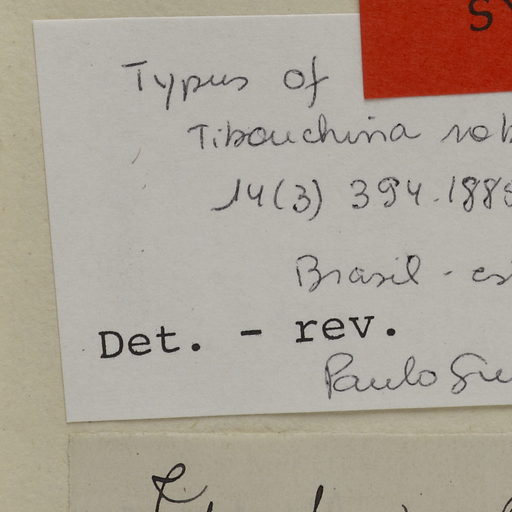 Typus of
Tibouchina rob
14(3) 394.1885
Brasil - es
Det. - rev.
Paulo Gu